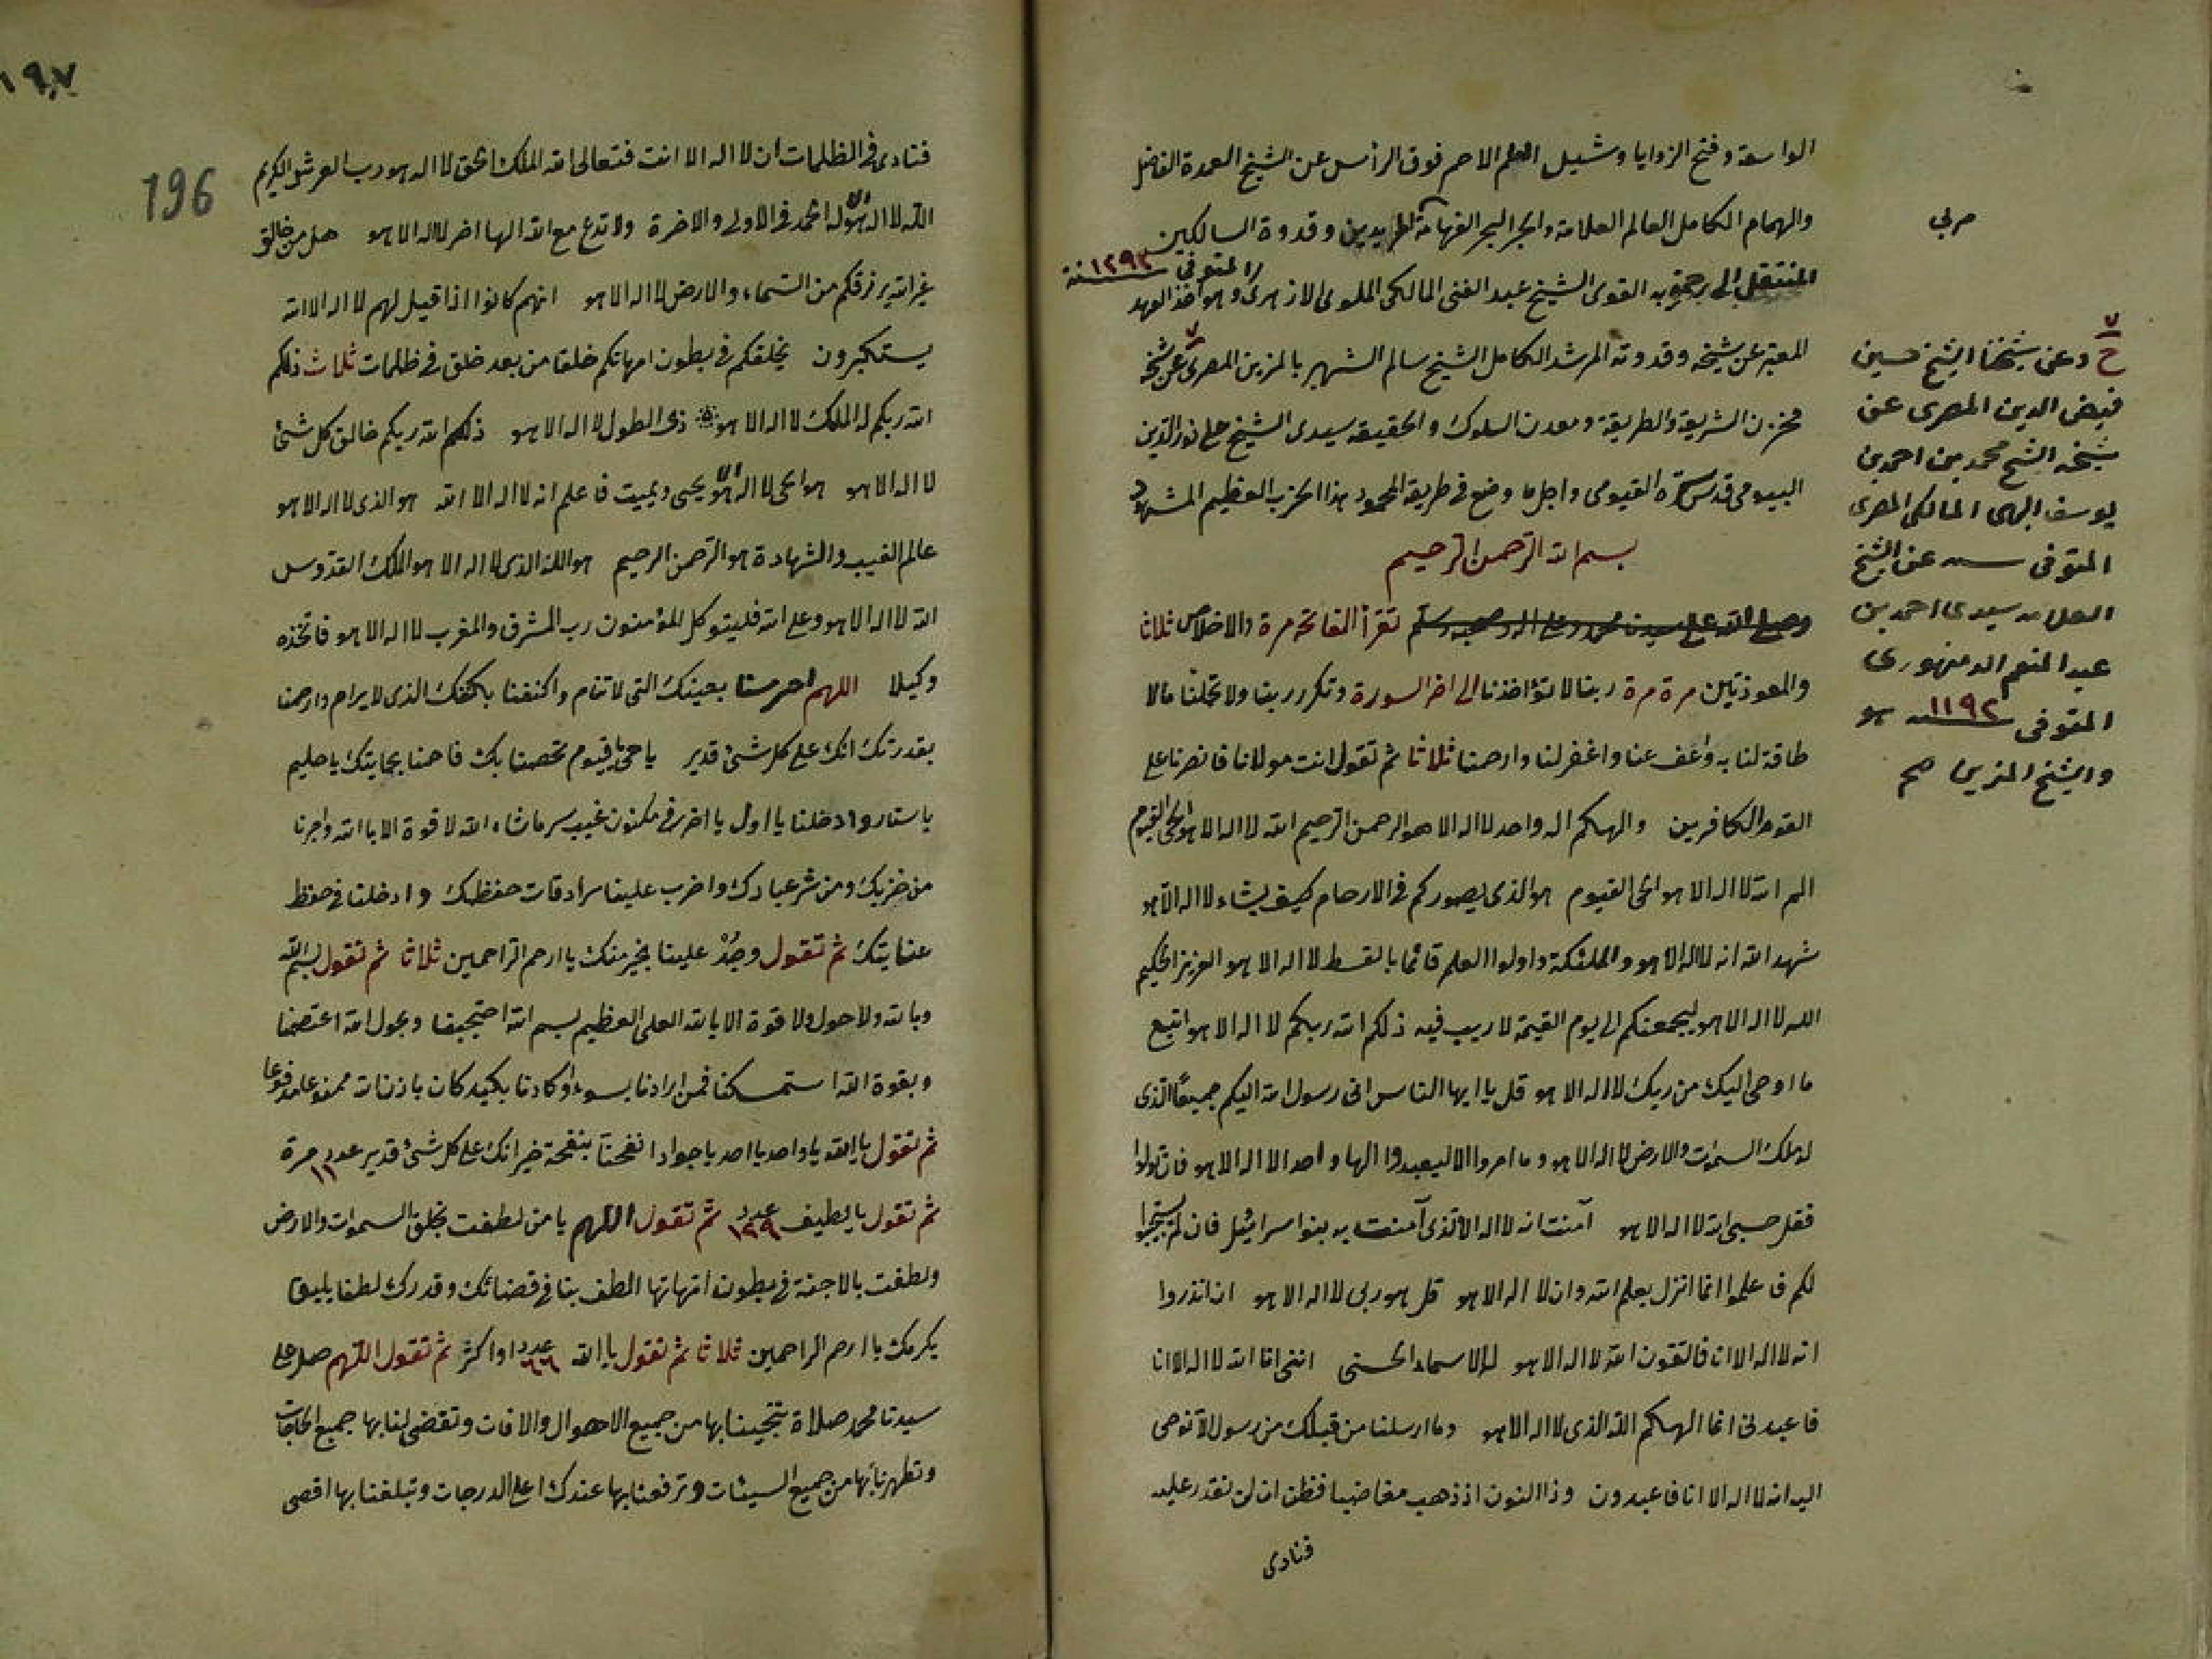 الواسعة وفتح الزوايا وشيل العلم الاحمر فوق الرأس عن الشيخ العمدة الفاضل
والهمام الكامل العالم العلامة والبحر الفهامة المريدين وقدوة السالكين
المنتقل الى رحمة ربه القوى الشيخ عبد الغنى المالكى الملوى الازهرى المتوفى سنة ١٢٩٢ وهو اخذ العهد
المعتبر عن شيخه وقدوته المرشد الكامل الشيخ سالم الشهير بالمزين المصرى عن شيخه
مخزن الشريعة والطريقة ومعدن السلوك والحقيقة سيدى الشيخ على نور الدين
البيومى قدس سره القيومى واجل ما وضع فى طريقة المحمود هذا الحزب العظيم المشهود
بسم الله الرحمن الرحيم
وصلى الله على سيدنا محمد وعلى اله وصحبه وسلم تقرأ الفاتحة مرة والاخلاص ثلاثا
والمعوذتين مرة مرة ربنا لا تؤاخذنا الى اخر السورة وتكرر ربنا ولا تحملنا مالا
طاقة لنا به واعف عنا واغفر لنا وارحمنا ثلاثا ثم تقول انت مولانا فانصرنا على
القوم الكافرين والهكم اله واحد لا اله الا هو الرحمن الرحيم الله لا اله الا هو الحى القيوم
الم الله لا اله الا هو الحى القيوم هو الذى يصوركم فى الارحام كيف يشاء لا اله الا هو
شهد الله انه لا اله الا هو والملئكة واولوا العلم قائما بالقسط لا اله الا هو العزيز الحكيم
الله لا اله الا هو ليجمعنكم الى يوم القيمة لا ريب فيه ذلكم الله ربكم لا اله الا هو اتبع
ما اوحى اليك من ربك لا اله الا هو قل يا ايها الناس انى رسول الله اليكم جميعا الذى
له ملك السموات والارض لا اله الا هو وما امروا الا ليعبدوا الها واحدا لا اله الا هو فان تولوا
فقل حسبى الله لا اله الا هو آمنت انه لا اله الا الذى آمنت به بنوا سرائيل فان لم يستجيبوا
لكم فاعلموا انما انزل بعلم الله وان لا اله الا هو قل هو ربى لا اله الا هو ان انذروا
انه لا اله الا انا فاتقون الله لا اله الا هو له الاسماء الحسنى اننى انا الله لا اله الا انا
فاعبدنى انما الهكم الله الذى لا اله الا هو وما ارسلنا من قبلك من رسول الا نوحى
اليه انه لا اله الا انا فاعبدون وذا النون اذ ذهب مغاضبا فظن ان لن نقدر عليه
فنادى
ح وعن شيخنا الشيخ حسين
فيض الدين المصرى عن
شيخه الشيخ محمد بن احمد بن
يوسف البهى المالكى المصرى
المتوفى سنه عن الشيخ
العلامه سيدى احمد بن
عبد المنعم الدمنهورى
المتوفى سنه ١١٩٢
والشيخ المزين صح
١٩٧
196
فنادى فى الظلمات ان لا اله الا انت فتعالى الله الملك الحق لا اله هو رب العرش الكريم
الله لا اله الا هو له الحمد فى الاولى والاخرة ولا تدع مع الله الها اخر لا اله الا هو هل من خالق
غير الله يرزقكم من السماء والارض لا اله الا هو انهم كانوا اذا قيل لهم لا اله الا الله
يستكبرون يخلقكم فى بطون امهاتكم خلقا من بعد خلق فى ظلمات ثلاث ذلكم
الله ربكم له الملك لا اله الا هو ذى الطول لا اله الا هو ذلكم الله ربكم خالق كل شئ
لا اله الا هو هو الحى لا اله الا هو يحيى ويميت فاعلم انه لا اله الا الله هو الذى لا اله الا هو
عالم الغيب والشهادة هو الرحمن الرحيم هو الله الذى لا اله الا هو الملك القدوس
الله لا اله الا هو وعلى الله فليتوكل المؤمنون رب المشرق والمغرب لا اله الا هو فاتخذه
وكيلا اللهم احرسنا بعينك التى لا تنام واكنفنا بكنفك الذى لا يرام وارحمنا
بقدرتك انك على كل شئ قدير يا حى يا قيوم تحصنا بك فاحمنا بحمايتك يا حليم
يا ستار وادخلنا يا اول يا اخر فى مكنون غيب سر ما شاء الله لا قوة الا بالله واجرنا
من خزيك ومن شر عبادك واضرب علينا سرادقات حفظك وادخلنا فى حفظ
عنايتك ثم تقول وجُدْ علينا بخير منك يا ارحم الراحمين ثلاثا ثم تقول بسم الله
وبالله ولا حول ولا قوة الا بالله العلى العظيم بسم الله احتجبنا وبحول الله اعتصمنا
وبقوة الله استمسكنا فمن ارادنا بسوء او كادنا بكيد كان باذن الله ممنوعا مدفوعا
ثم تقول يا الله يا واحد يا احد يا جواد انفحنا بنفحة خير انك على كل شئ قدير عدد ١١ مرة
ثم تقول يا لطيف عدد ١٢٩ ثم تقول اللهم يا من لطفت بخلق السموات والارض
ولطفت بالاجنة فى بطون امهاتها الطف بنا فى قضائك وقدرك لطفا يليق
بكرمك يا ارحم الراحمين ثلاثا ثم تقول يا الله عدد ٦٦ او اكثر ثم تقول اللهم صل على
سيدنا محمد صلاة تنجينا بها من جميع الاهوال والافات وتقضى لنا بها جميع الحاجات
وتطهرنا بها من جميع السيئات وترفعنا بها عندك اعلى الدرجات وتبلغنا بها اقصى